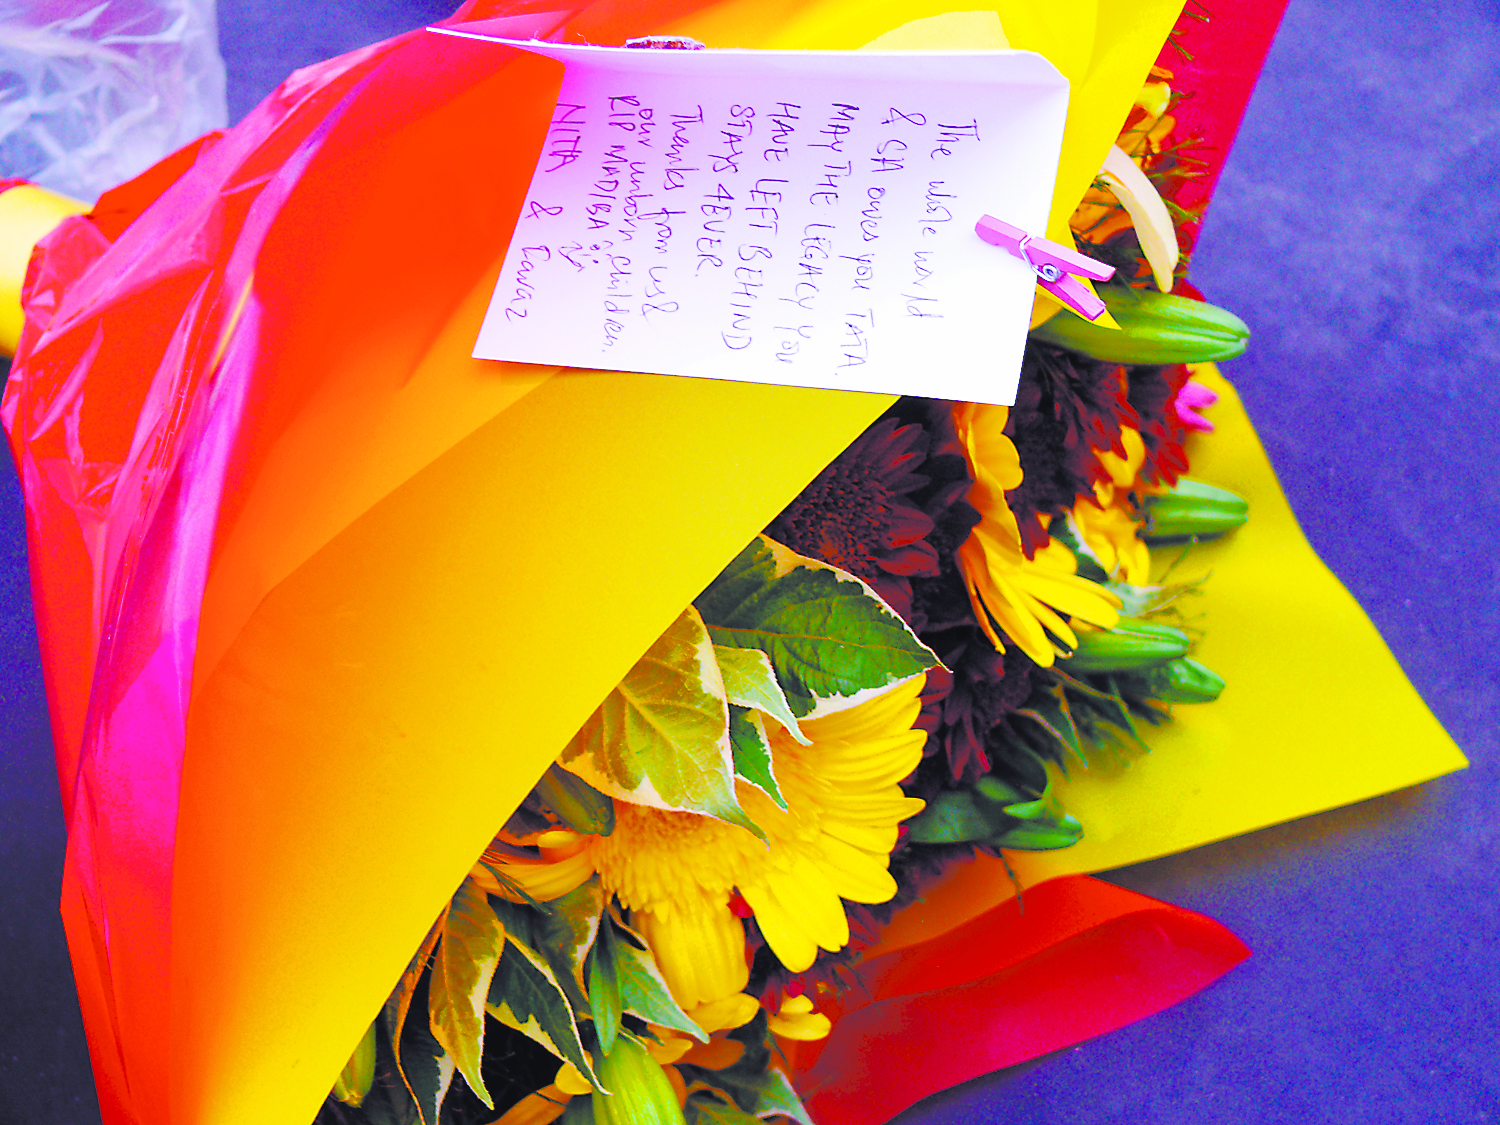 The whole world
& SA owes you TATA.
MAY THE LEGACY YOU
HAVE LEFT BEHIND
STAYS 4EVER.
Thanks from us &
our unborn children.
RIP MADIBA
NITA & Rawaz